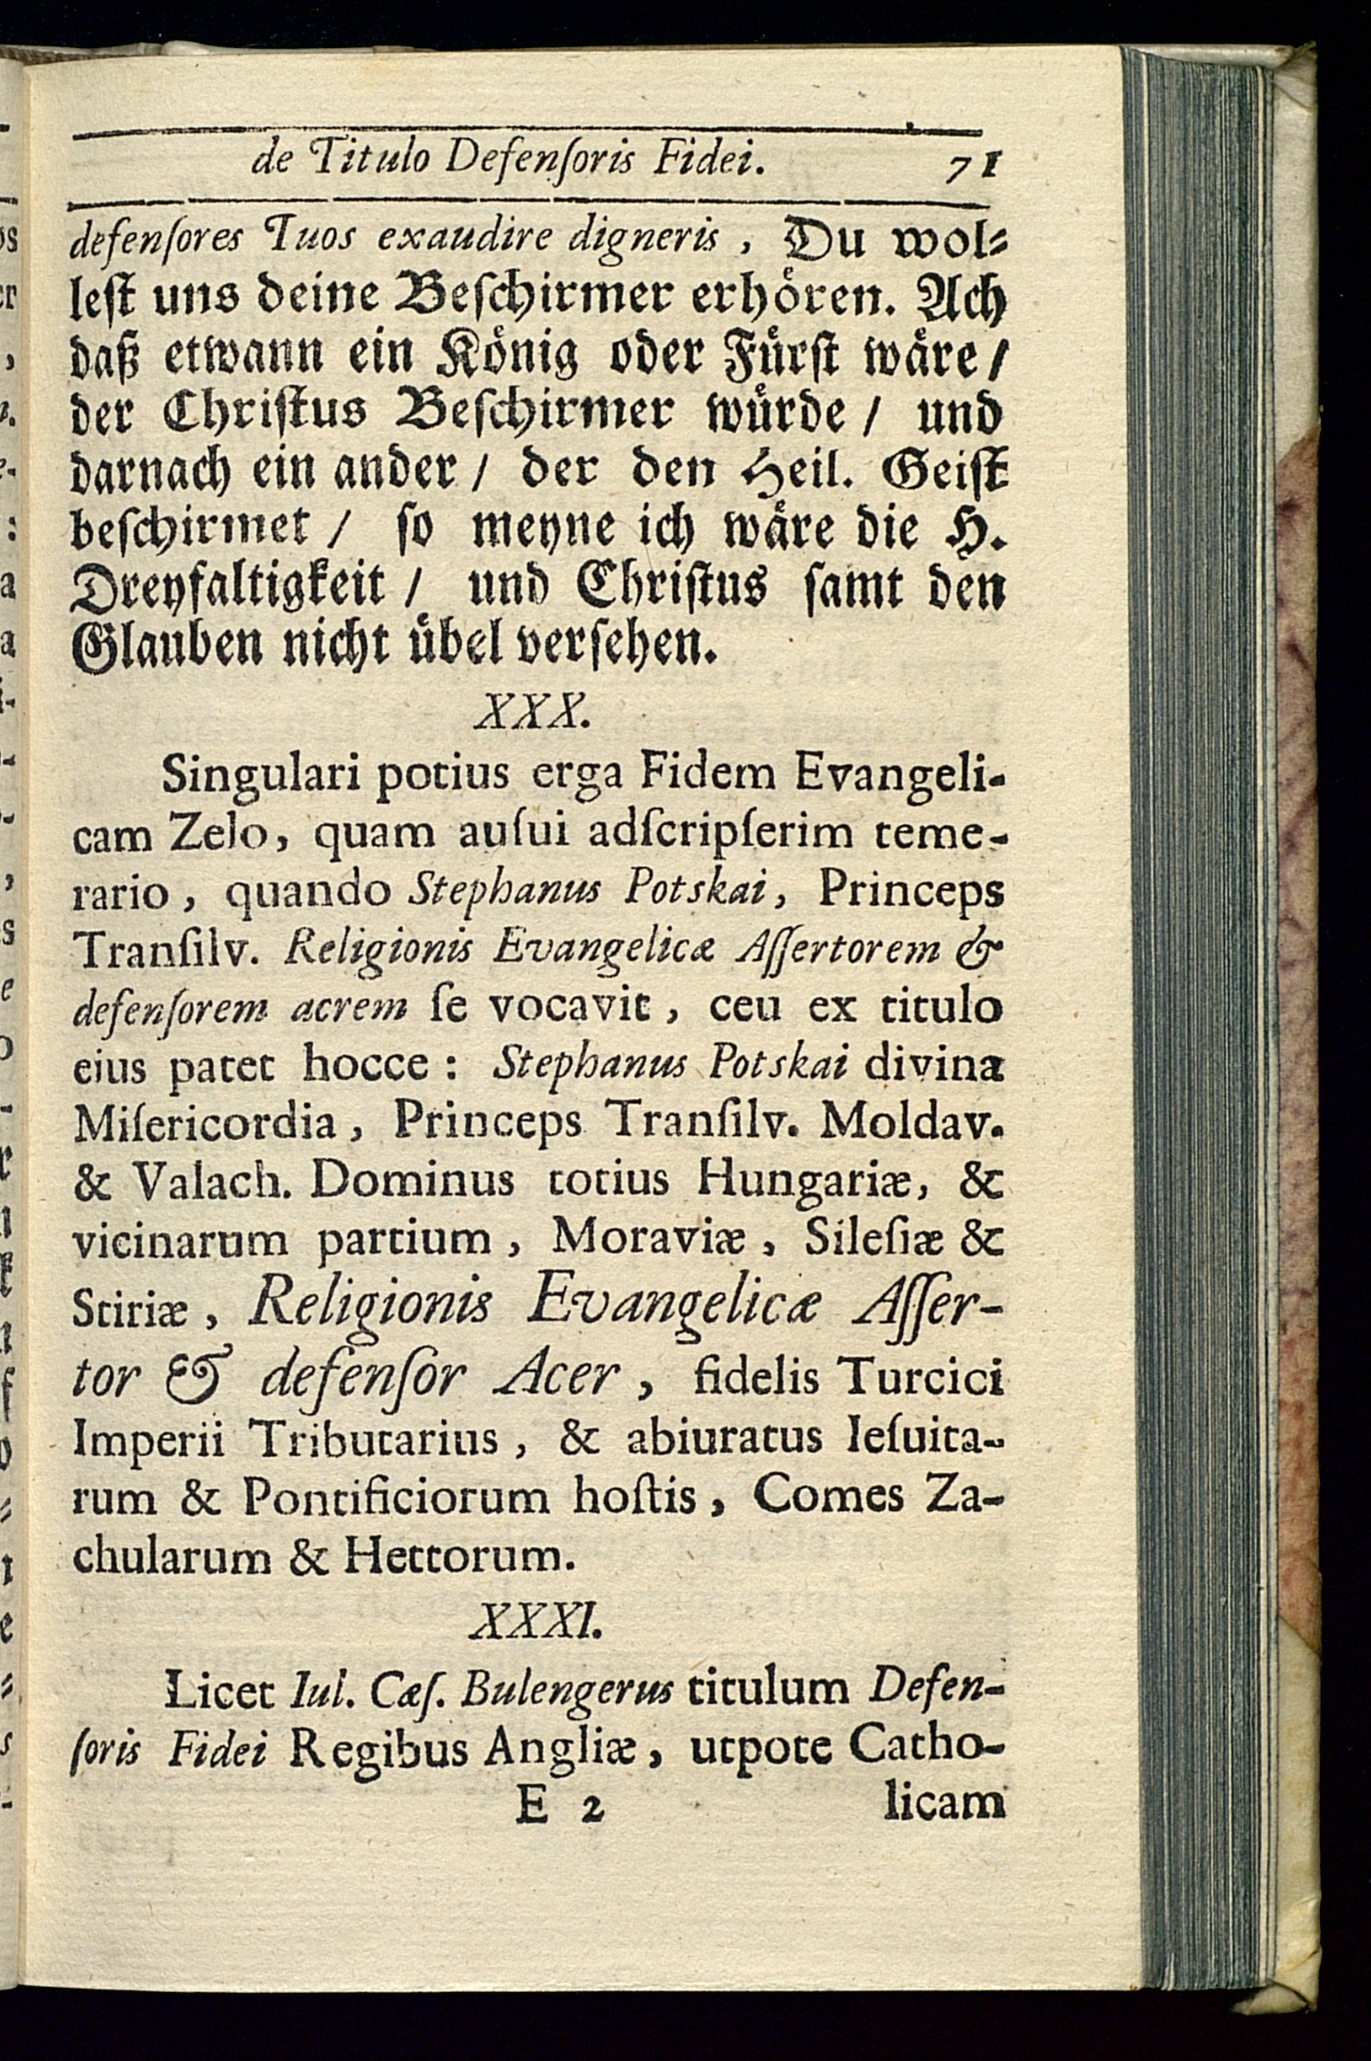 de Titulo Defenſoris Fidei. 71
defenſores Tuos exaudire digneris, Du wol⸗
leſt uns deine Beſchirmer erhören. Ach
daß etwann ein König oder Fürſt wäre /
der Chriſtus Beſchirmer würde / und
darnach ein ander / der den Heil. Geiſt
beſchirmet / ſo meyne ich wäre die H.
Dreyfaltigkeit / und Chriſtus ſamt den
Glauben nicht übel verſehen.
XXX.
Singulari potius erga Fidem Evangeli-
cam Zelo, quam auſui adſcripſerim teme-
rario, quando Stephanus Potskai, Princeps
Tranſilv. Religionis Evangelicæ Aſſertorem &
defenſorem acrem ſe vocavit, ceu ex titulo
eius patet hocce: Stephanus Potskai divina
Miſericordia, Princeps Tranſilv. Moldav.
& Valach. Dominus totius Hungariæ, &
vicinarum partium, Moraviæ, Sileſiæ &
Stiriæ, Religionis Evangelicæ Aſſer-
tor & defenſor Acer, fidelis Turcici
Imperii Tributarius, & abiuratus Ieſuita-
rum & Pontificiorum hoſtis, Comes Za-
chularum & Hettorum.
XXXI.
Licet Iul. Cæſ. Bulengerus titulum Defen-
ſoris Fidei Regibus Angliæ, utpote Catho-
E 2 licam